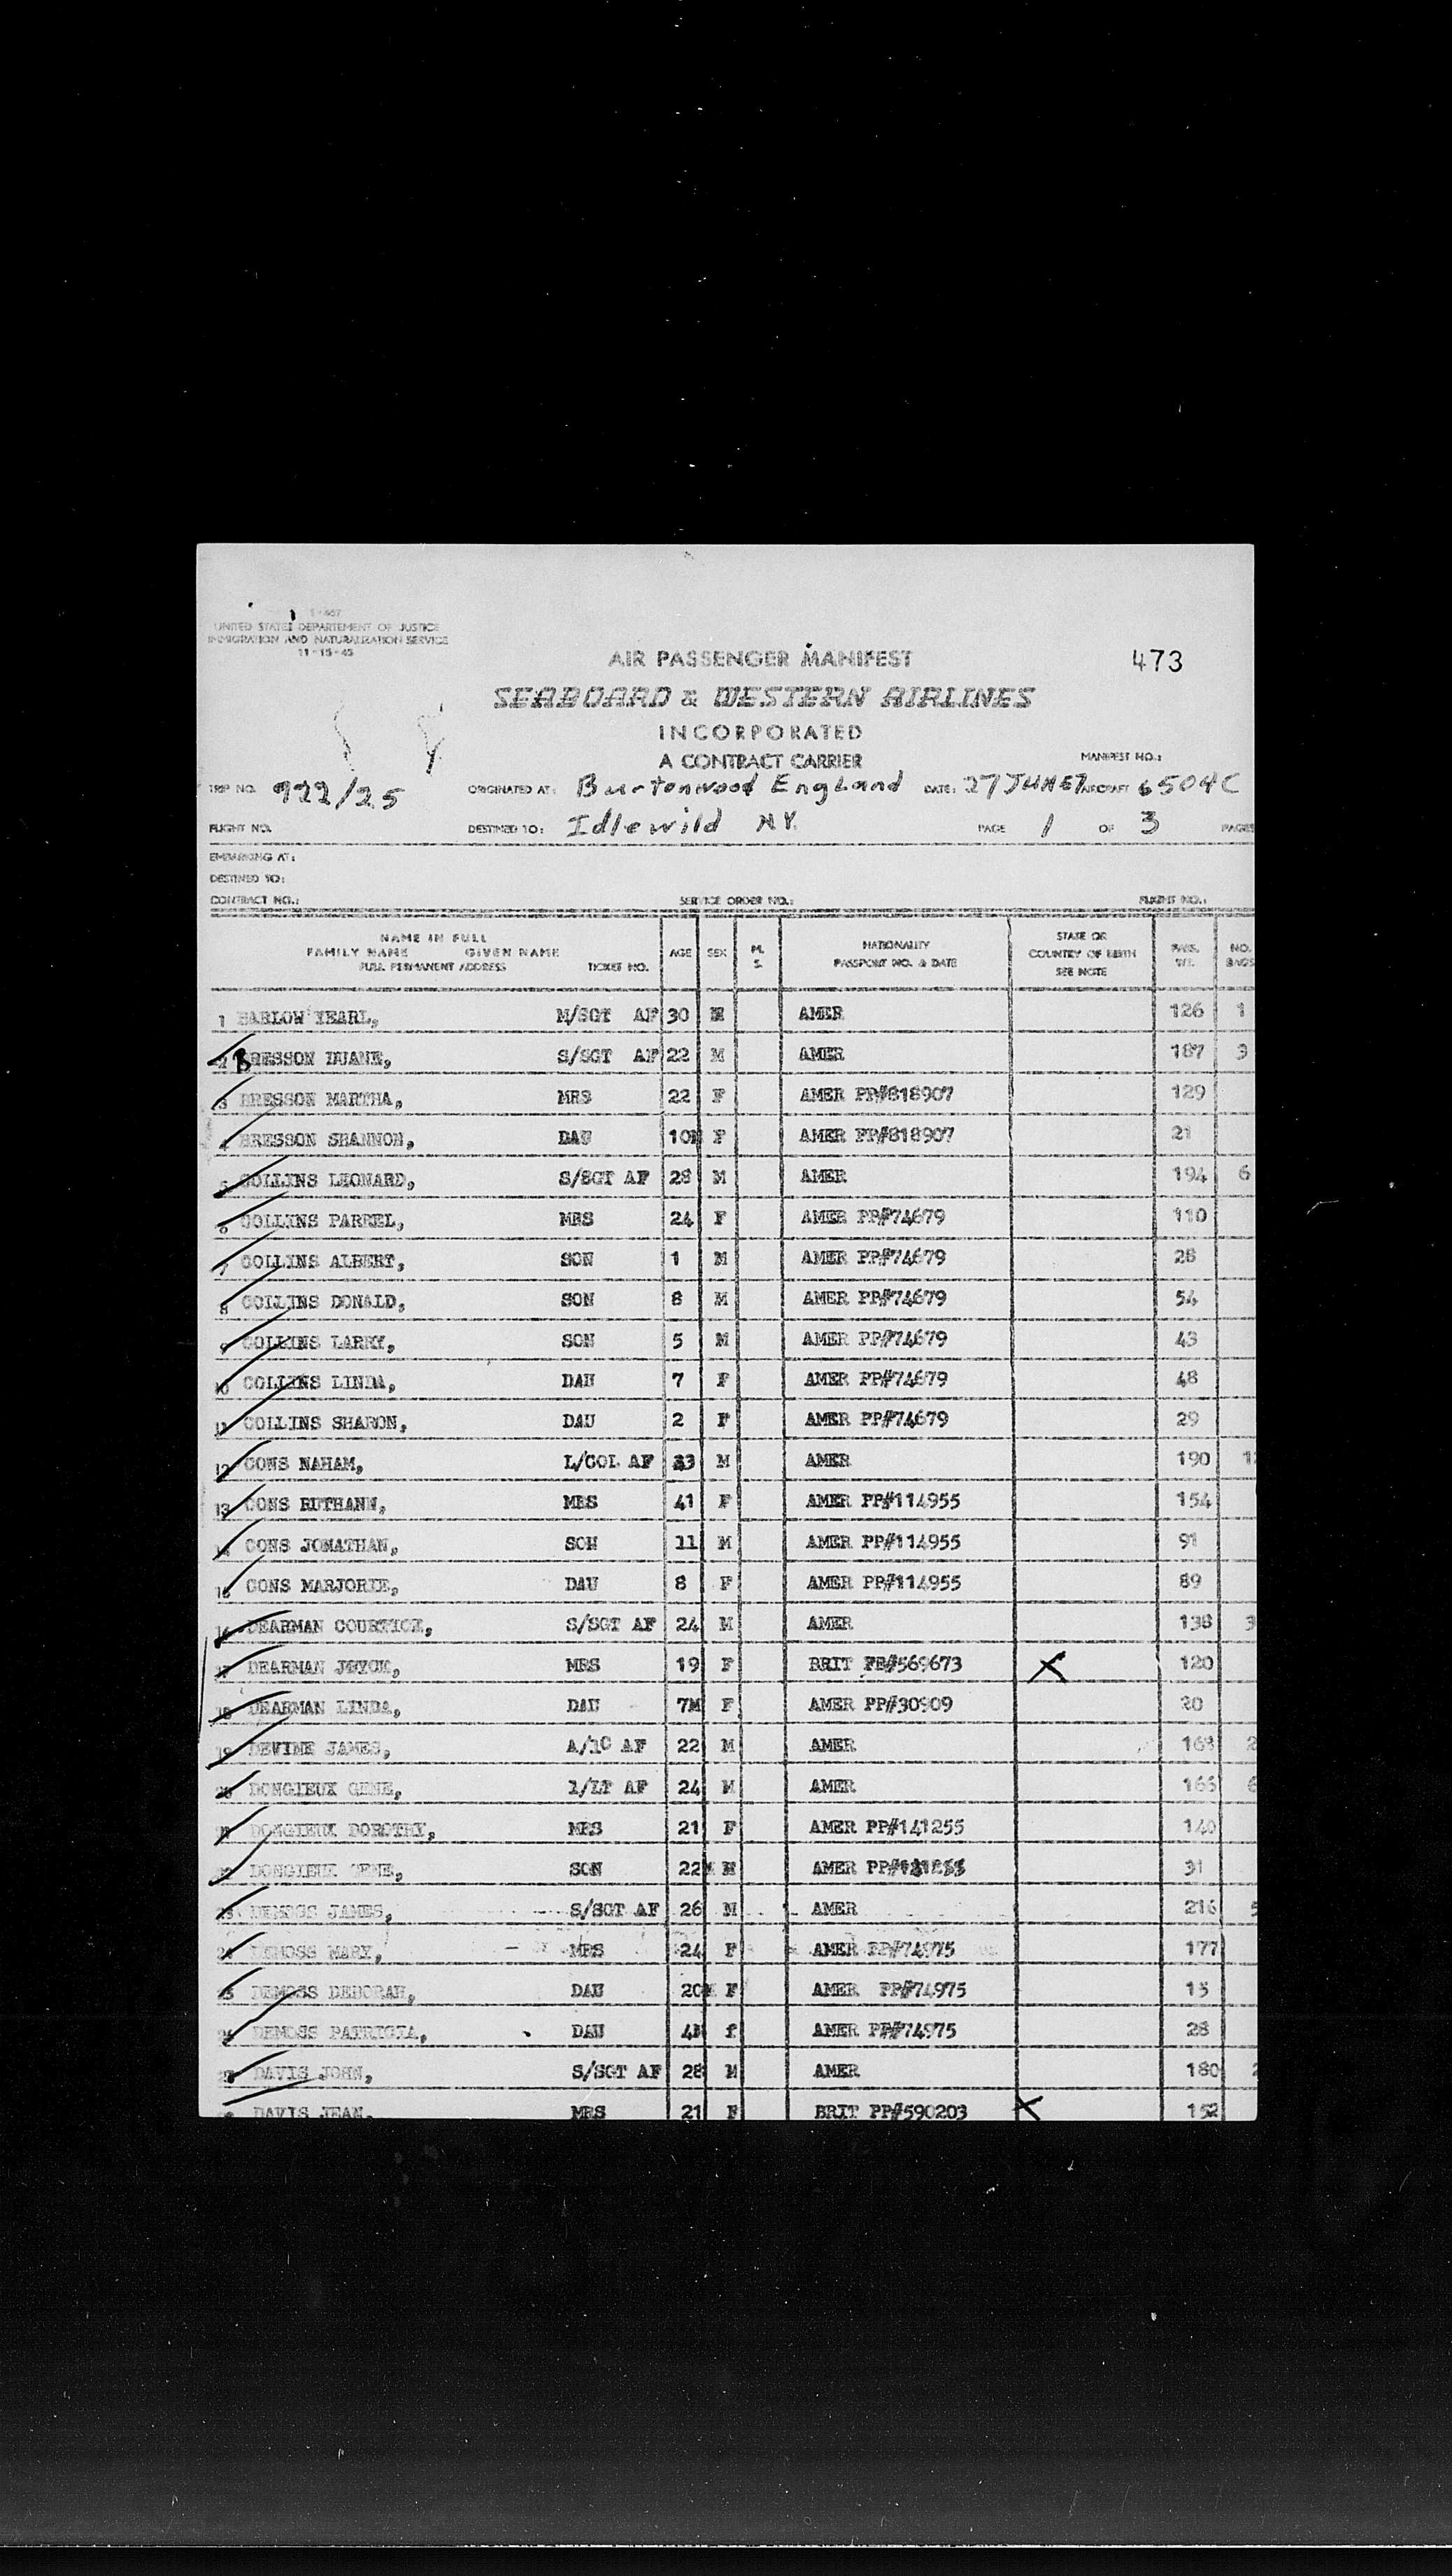 I-467
UNITED STATES DEPARTEMENT OF JUSTICE
IMMIGRATION AND NATURALIZATION SERVICE
11-15-45
AIR PASSENGER MANIFEST 473
SEABOARD & WESTERN AIRLINES
INCORPORATED
A CONTRACT CARRIER
MANIFEST NO.:
TRIP NO. 922/25 ORIGINATED AT: Burtonwood England DATE: 27 JUNE AIRCRAFT 6504C
FLIGHT NO. DESTINED TO: Idlewild N.Y. PAGE 1 OF 3 PAGES
EMBARKING AT:
DESTINED TO:
CONTRACT NO.: SERVICE ORDER NO.: FLIGHT NO.:
NAME IN FULL
FAMILY NAME GIVEN NAME
FULL PERMANENT ADDRESS TICKET NO. AGE SEX M. S. NATIONALITY PASSPORT NO. & DATE STATE OR COUNTRY OF BIRTH SEE NOTE PASS. WT. NO. BAGS
1 BARLOW YEARL, M/SGT AF 30 M AMER 126 1
2 BRESSON DUANE, S/SGT AF 22 M AMER 187 3
3 BRESSON MARTHA, MRS 22 F AMER PP#818907 129
4 BRESSON SHANNON, DAU 10M F AMER PP#818907 21
5 COLLINS LEONARD, S/SGT AF 28 M AMER 194 6
6 COLLINS PARREL, MRS 24 F AMER PP#74679 110
7 COLLINS ALBERT, SON 1 M AMER PP#74679 28
8 COLLINS DONALD, SON 8 M AMER PP#74679 54
9 COLLINS LARRY, SON 5 M AMER PP#74679 43
10 COLLINS LINDA, DAU 7 F AMER PP#74679 48
11 COLLINS SHARON, DAU 2 F AMER PP#74679 29
12 CONS NAHAM, L/COL AF 33 M AMER 190
13 CONS RUTHANN, MRS 41 F AMER PP#114955 154
14 CONS JONATHAN, SON 11 M AMER PP#114955 91
15 CONS MARJORIE, DAU 8 F AMER PP#114955 89
16 DEARMAN COURTICE, S/SGT AF 24 M AMER 138 3
17 DEARMAN JOYCE, MRS 19 F BRIT PP#569673 X 120
18 DEARMAN LINDA, DAU 7M F AMER PP#30909 20
19 DEVINE JAMES, A/1C AF 22 M AMER 2
20 DONGIEUX GENE, 1/LT AF 24 M AMER 166 6
21 DONGIEUX DOROTHY, MRS 21 F AMER PP#141255 140
22 DONGIEUX GENE, SON 22M M AMER 31
23 DEMOSS JAMES, S/SGT AF 26 M AMER 216 5
24 DEMOSS MARY, MRS 24 F AMER PP#74975 177
25 DEMOSS DEBORAH, DAU 20M F AMER PP#74975 15
26 DEMOSS PATRICIA, DAU F AMER PP#74975 28
27 DAVIS JOHN, S/SGT AF 28 M AMER 180 2
28 DAVIS JEAN, MRS 21 F BRIT PP#590203 X 152